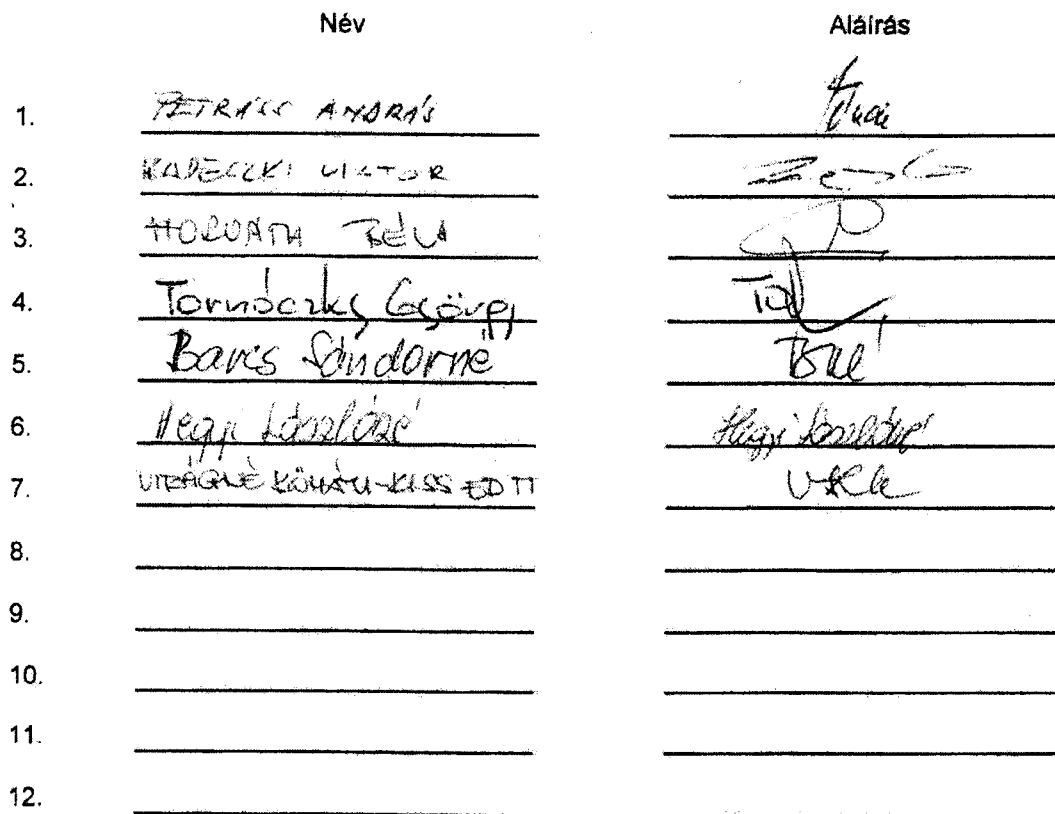 Név Aláírás
1. PETRÁSS ANDRÁS
2. KADECZKI VIKTOR
3. HORVÁTH BÉLA
4. Tornóczky György
5. Barcs Sándorné
6. Hegyi Lászlóné Hegyi Lászlóné
7. VIRÁGNÉ KŐHÁTI-KISS EDIT
8.
9.
10.
11.
12.